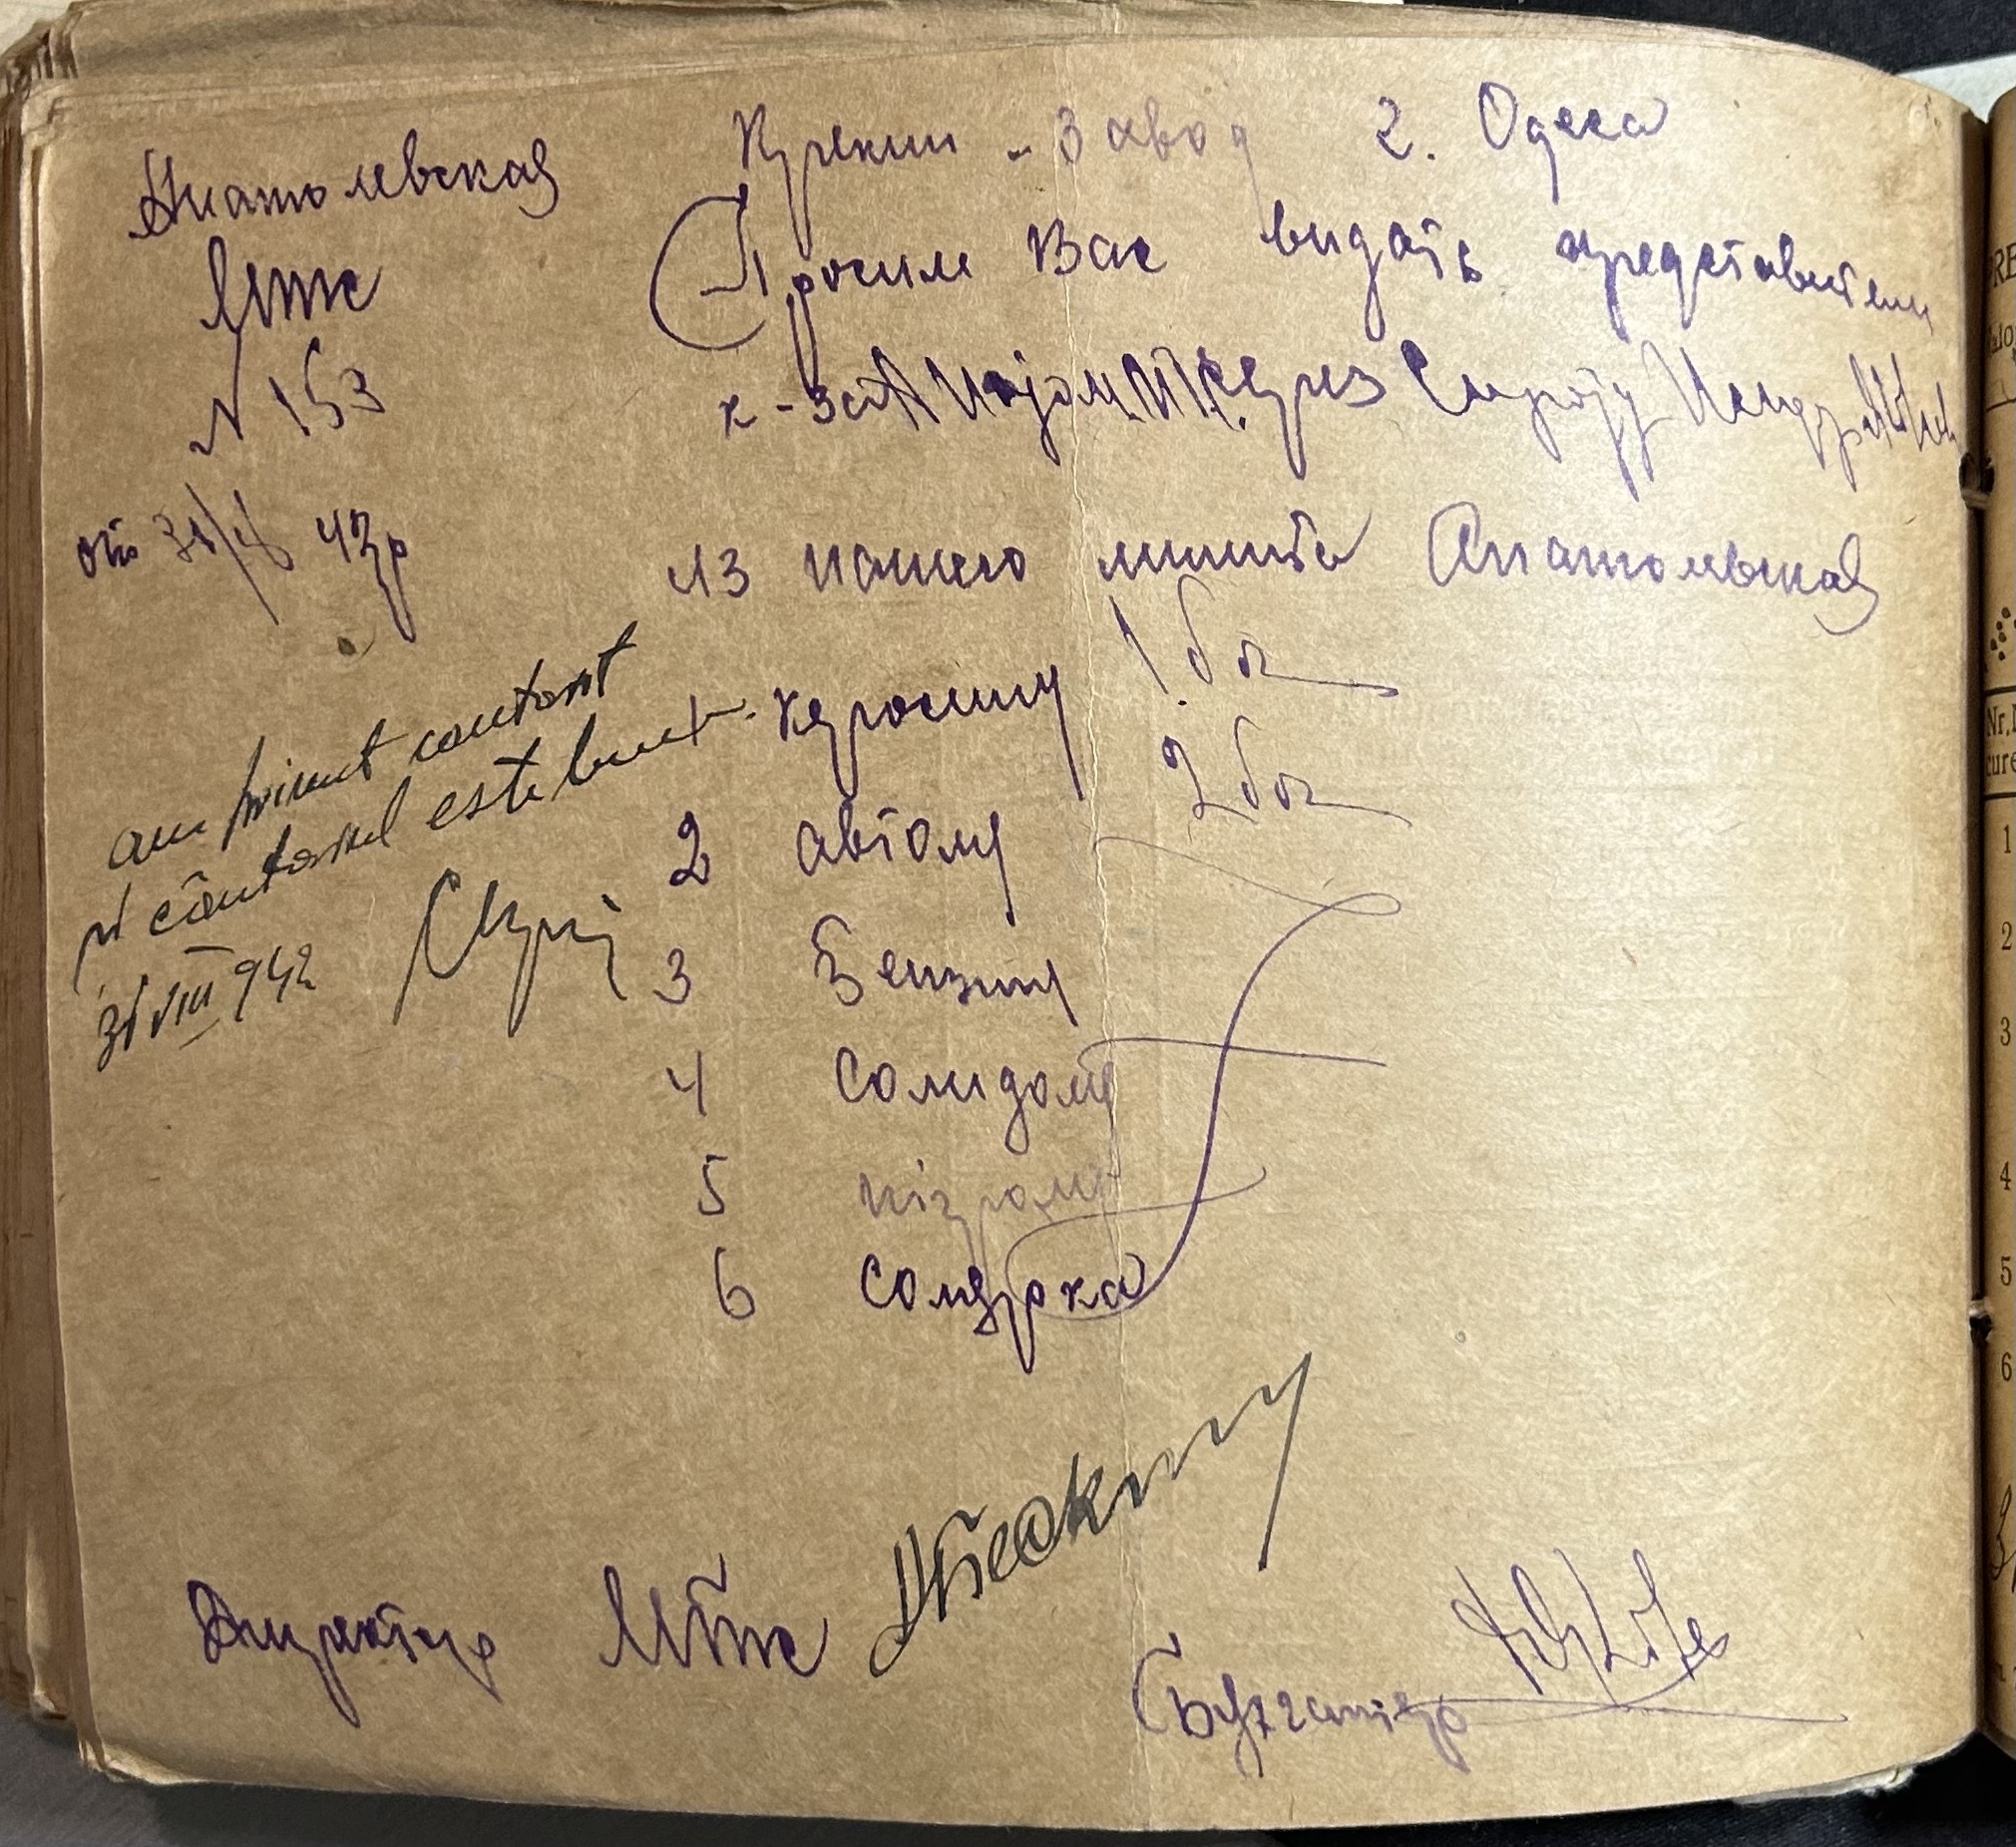 Анатолевская
Мтс
N 153
от 31/8 42р
Крекин - Завод г. Одеса
Просим Вас видать представителя
к-за через Сироту
из нашего лимита Анатолевская
керосину 1. боч
2 автолу 2 боч
3 Бензину
4 Солидолу
5 нігролу
6 солярка
am primit contant
și cântarul este bun
31 VIII 942
Директор Мтс
Бухгалтер
RE
Nr.
cure
1
2
3
4
5
6